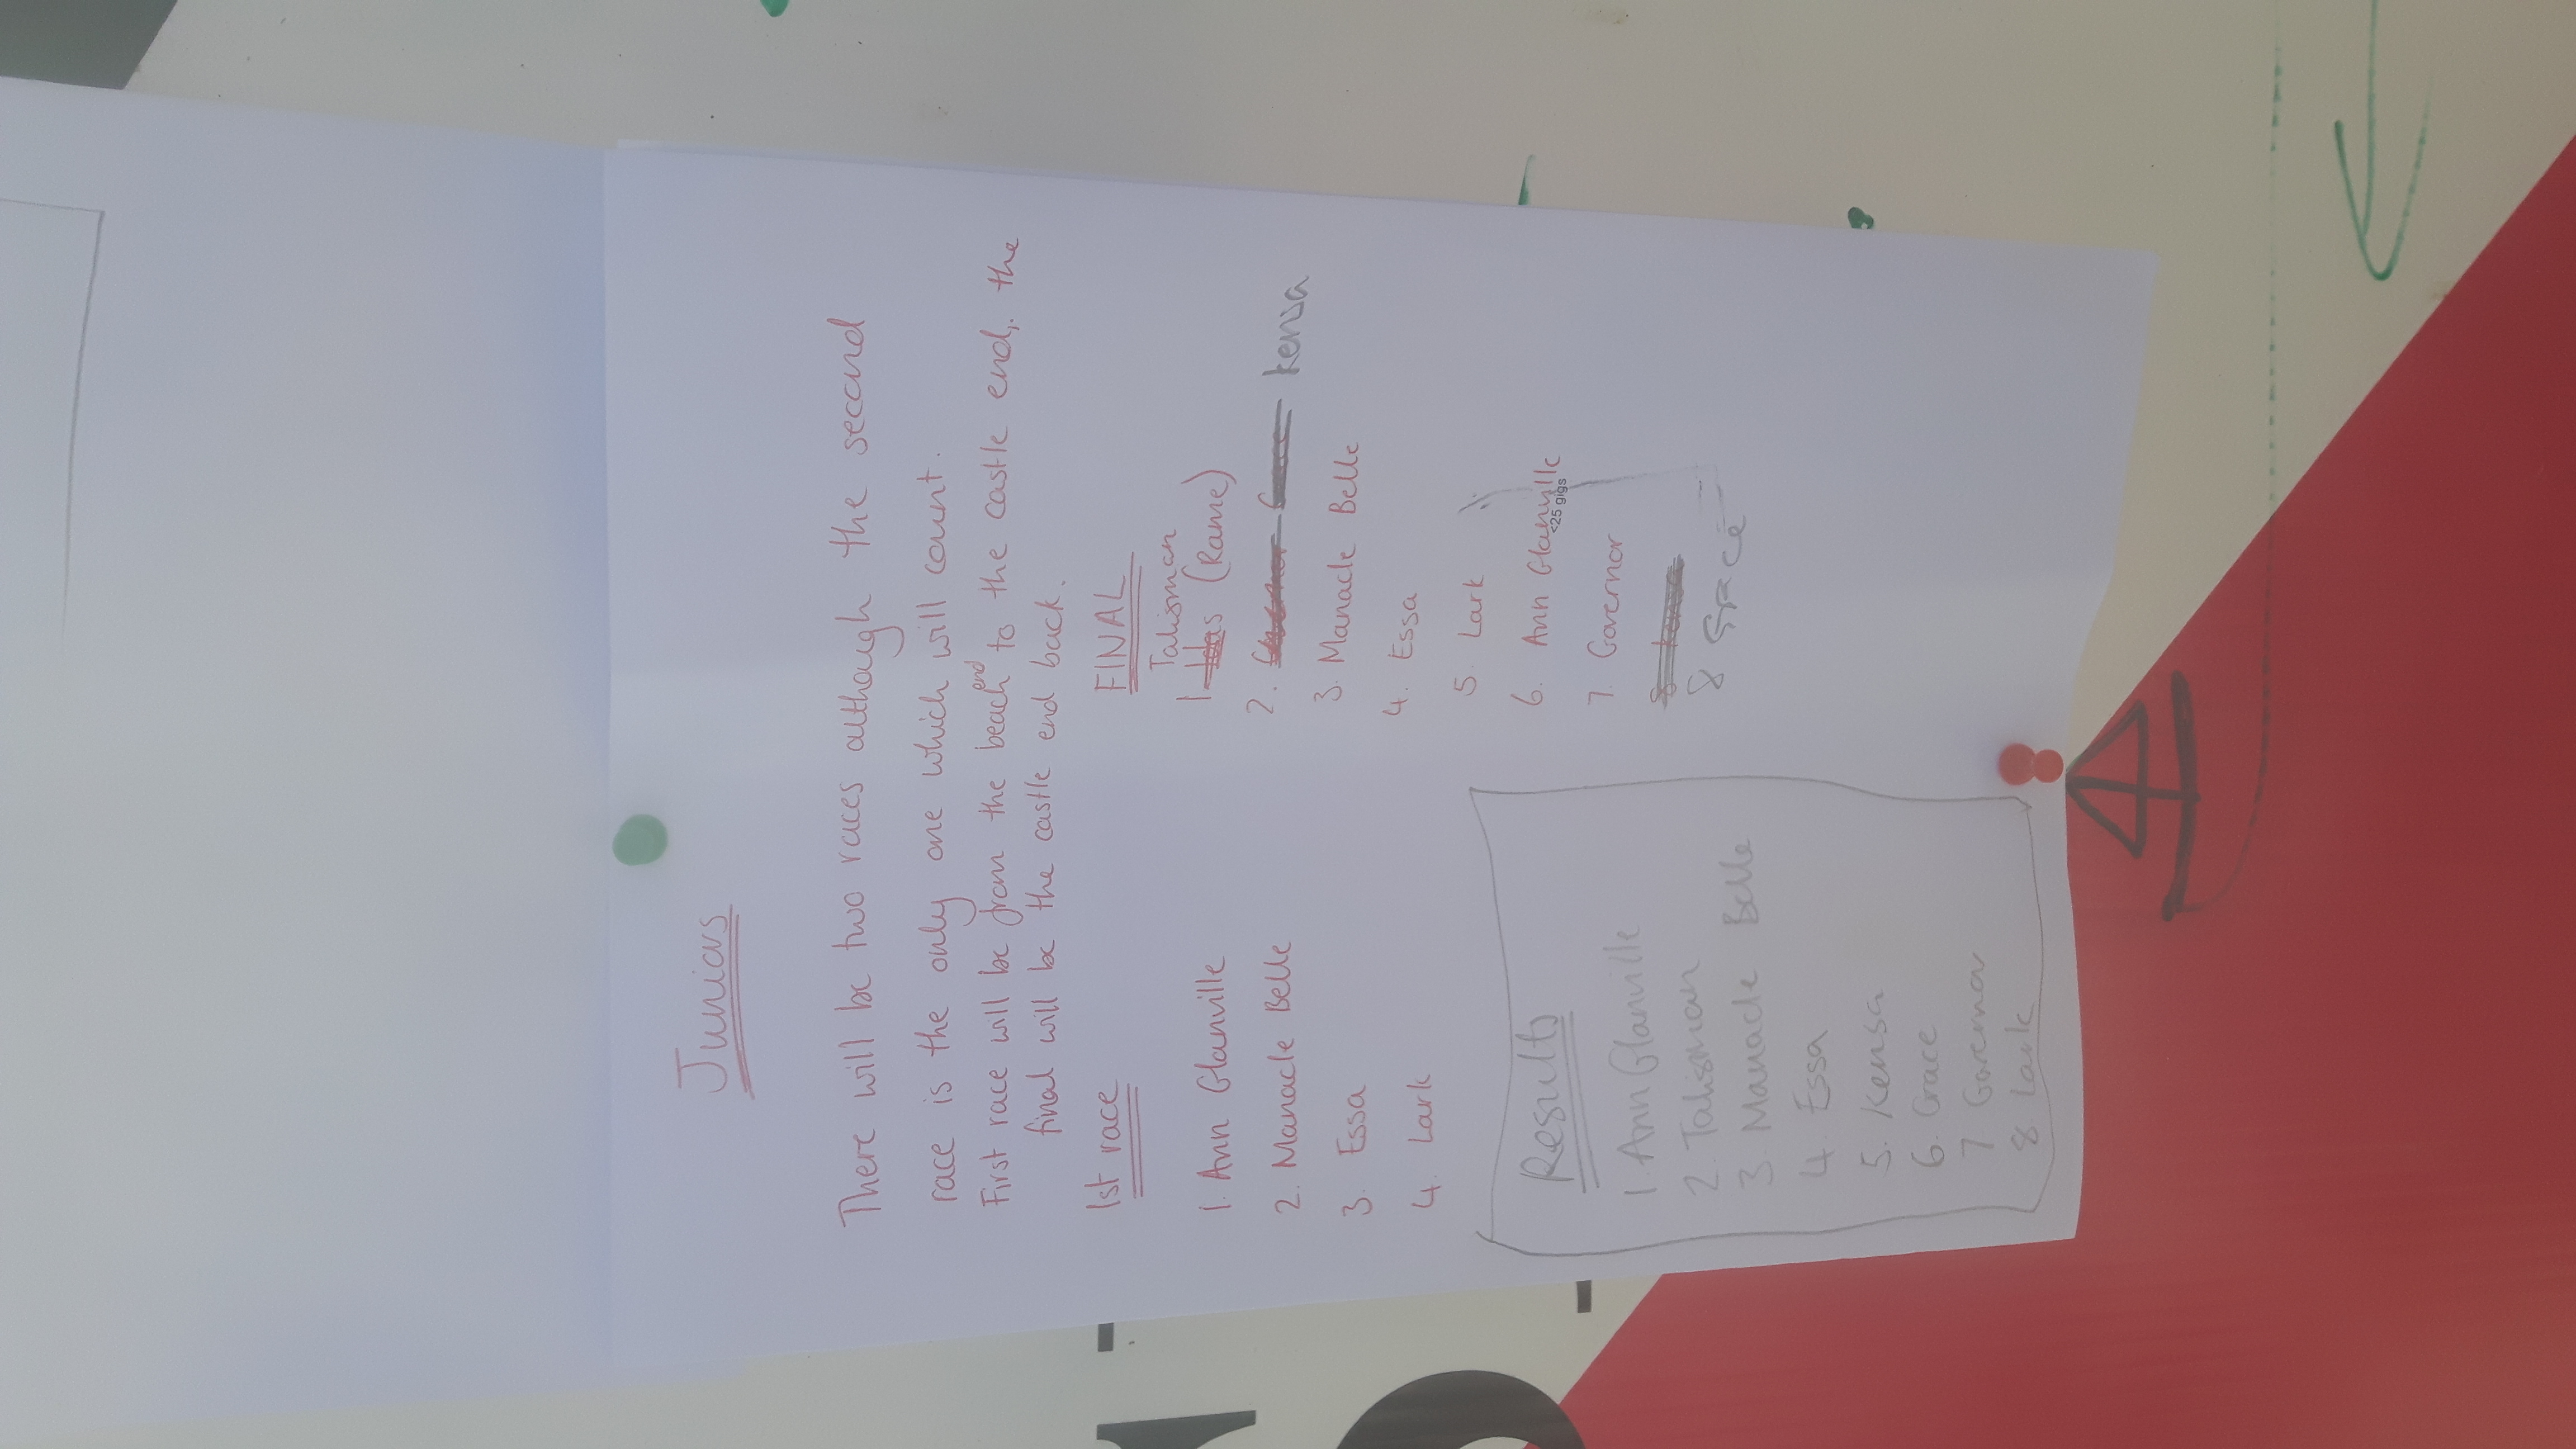 Juniors
There will be two races although the second
race is the only one which will count.
First race will be from the beach end to the castle end, the
final will be the castle end back.
1st race
1. Ann Glanville
2. Manacle Belle
3. Essa
4. Lark
FINAL
Talisman
1 (Rame)
2. Kensa
3. Manacle Belle
4. Essa
5. Lark
6. Ann Glanville
<25 gigs
7. Governor
8 Grace
Results
1. Ann Glanville
2. Talisman
3. Manacle Belle
4 Essa
5. Kensa
6. Grace
7 Governor
8 Lark